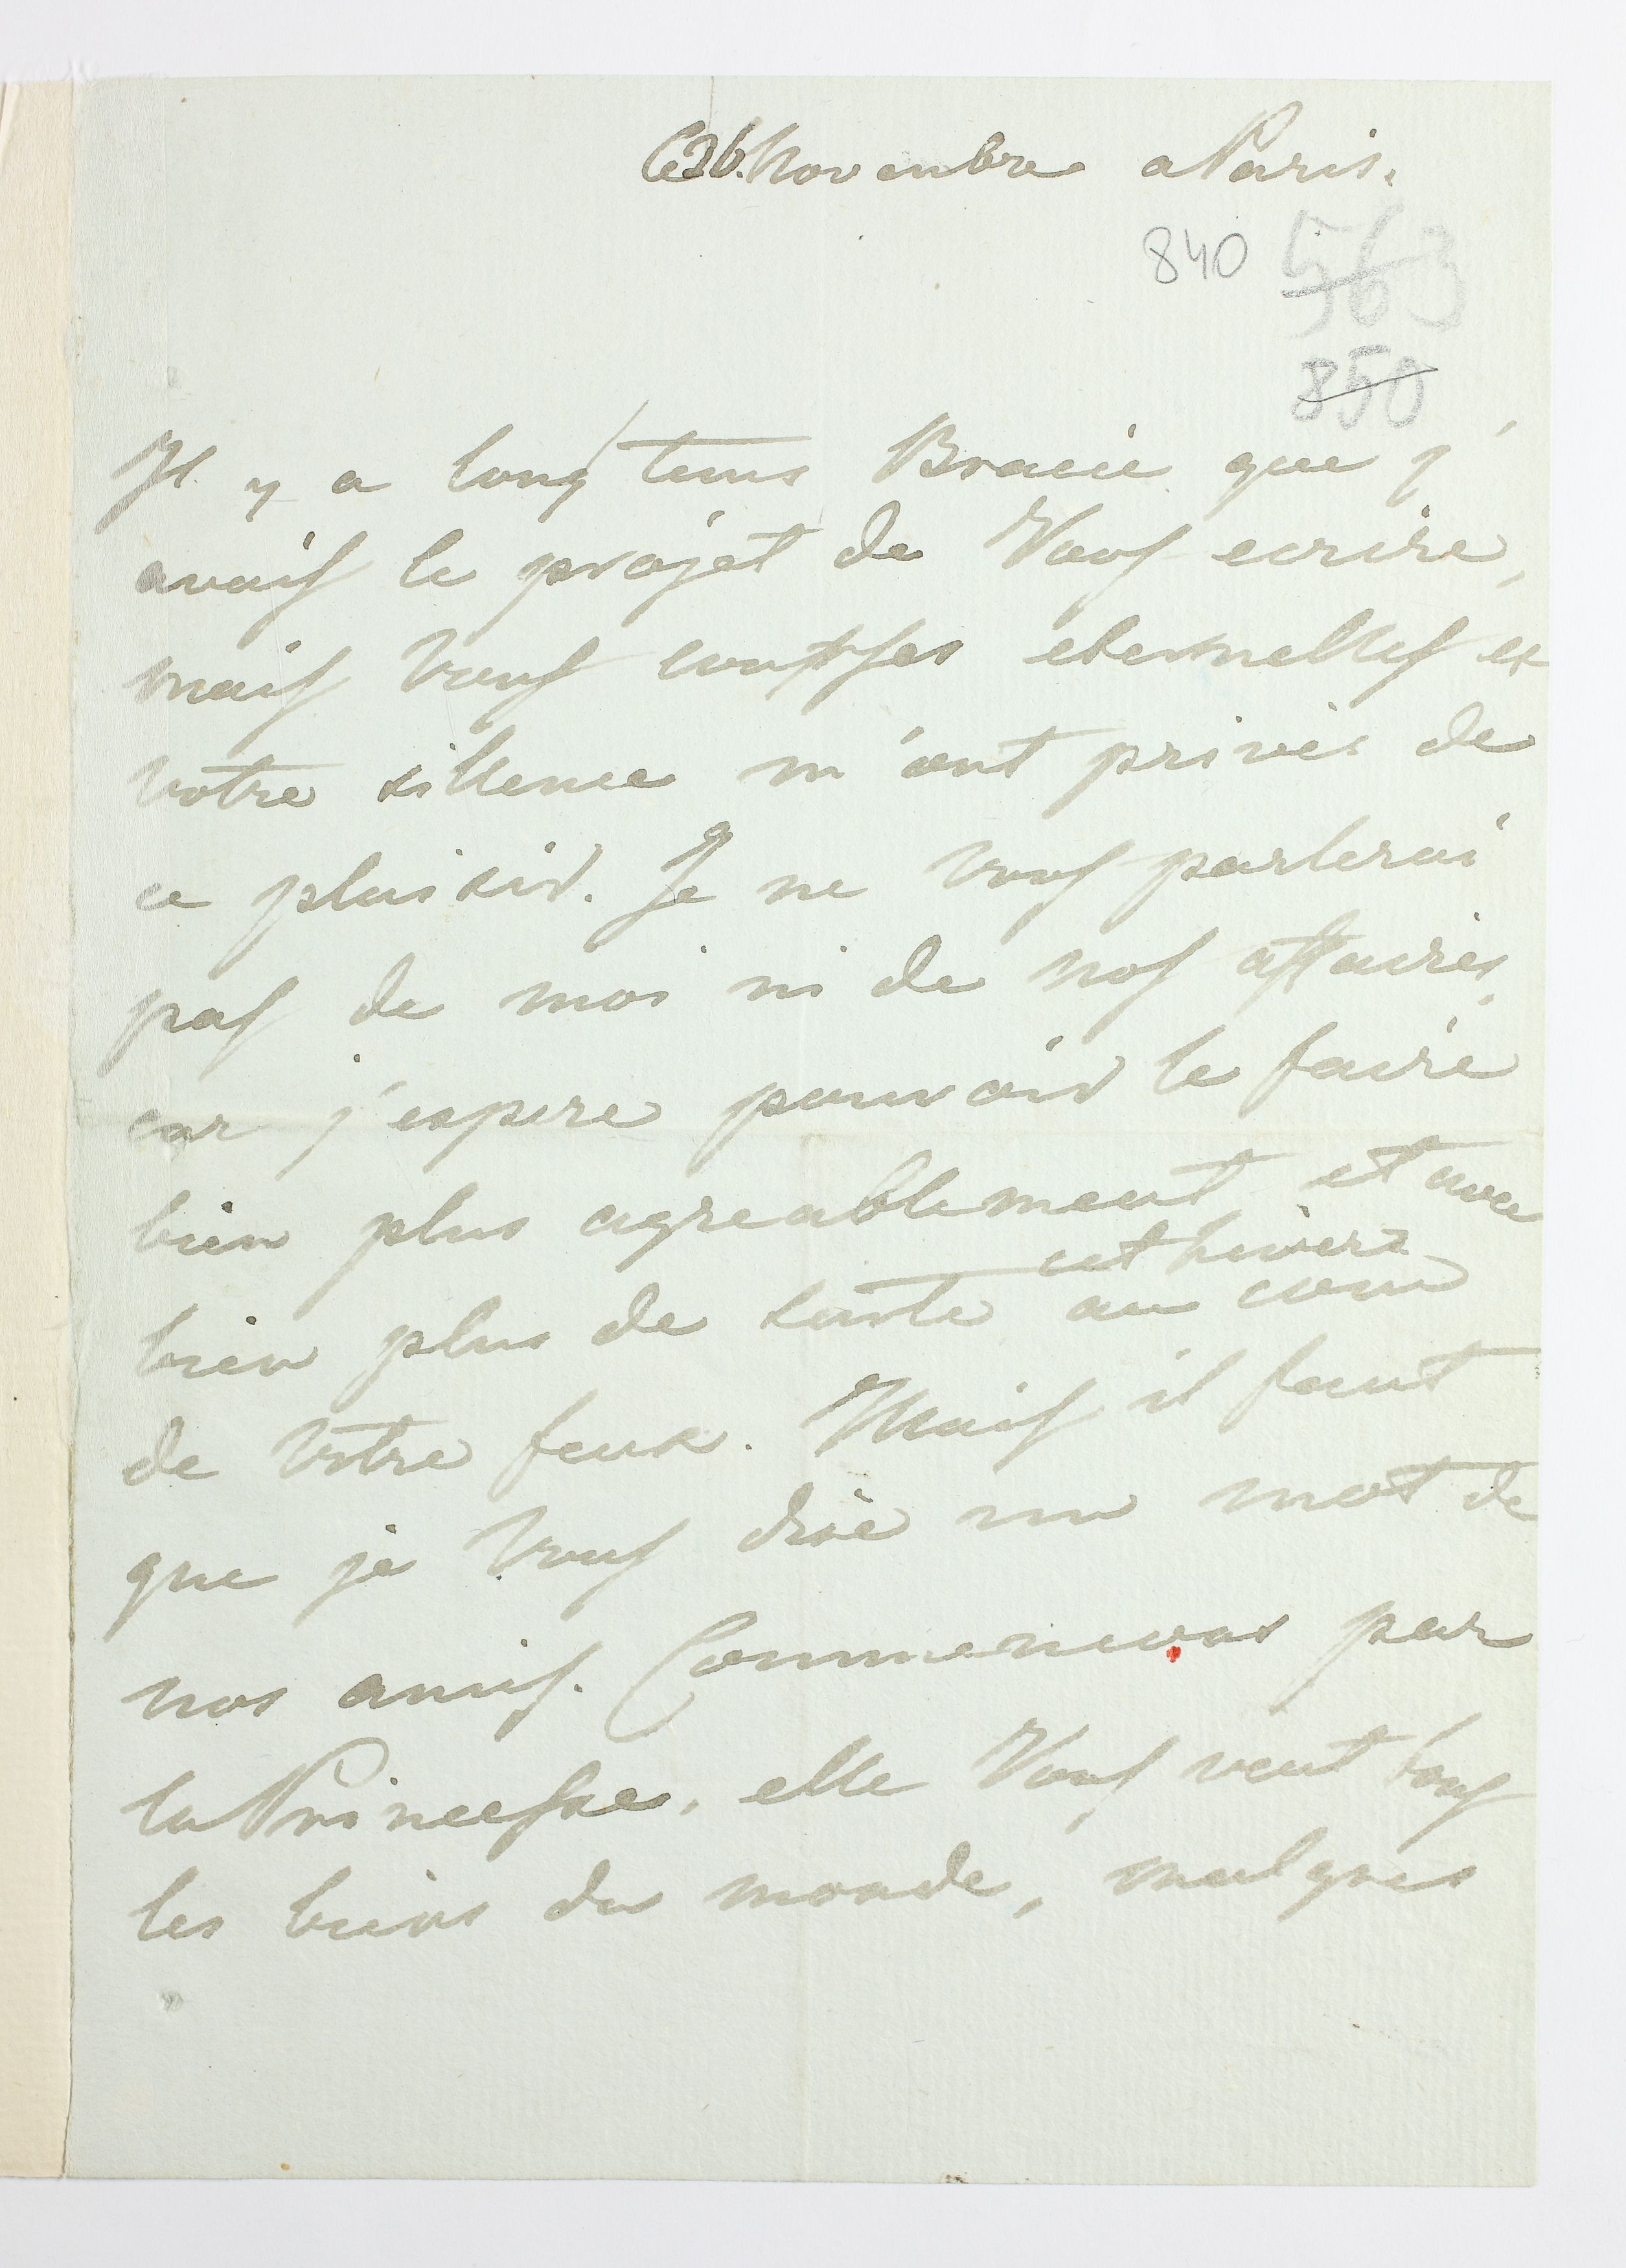 Ce 26. Novembre a Paris.
840 563
850
Il y a long tems Bracie que j'
avais le projet de Vous ecrire,
mais Vous courses eternelles et
votre sillence m'ont privés de
ce plaisir. Je ne vous parlerai
pas de moi ni de nos affaires,
car j'espere pouvoir le faire
bien plus agreablement et avec
cet hivers
bien plus de suite au coin
de Votre feux. Mais il faut
que je Vous dise un mot de
nos amis. Commencons par
la Princesse, elle Vous veut tous
les biens du monde, malgres